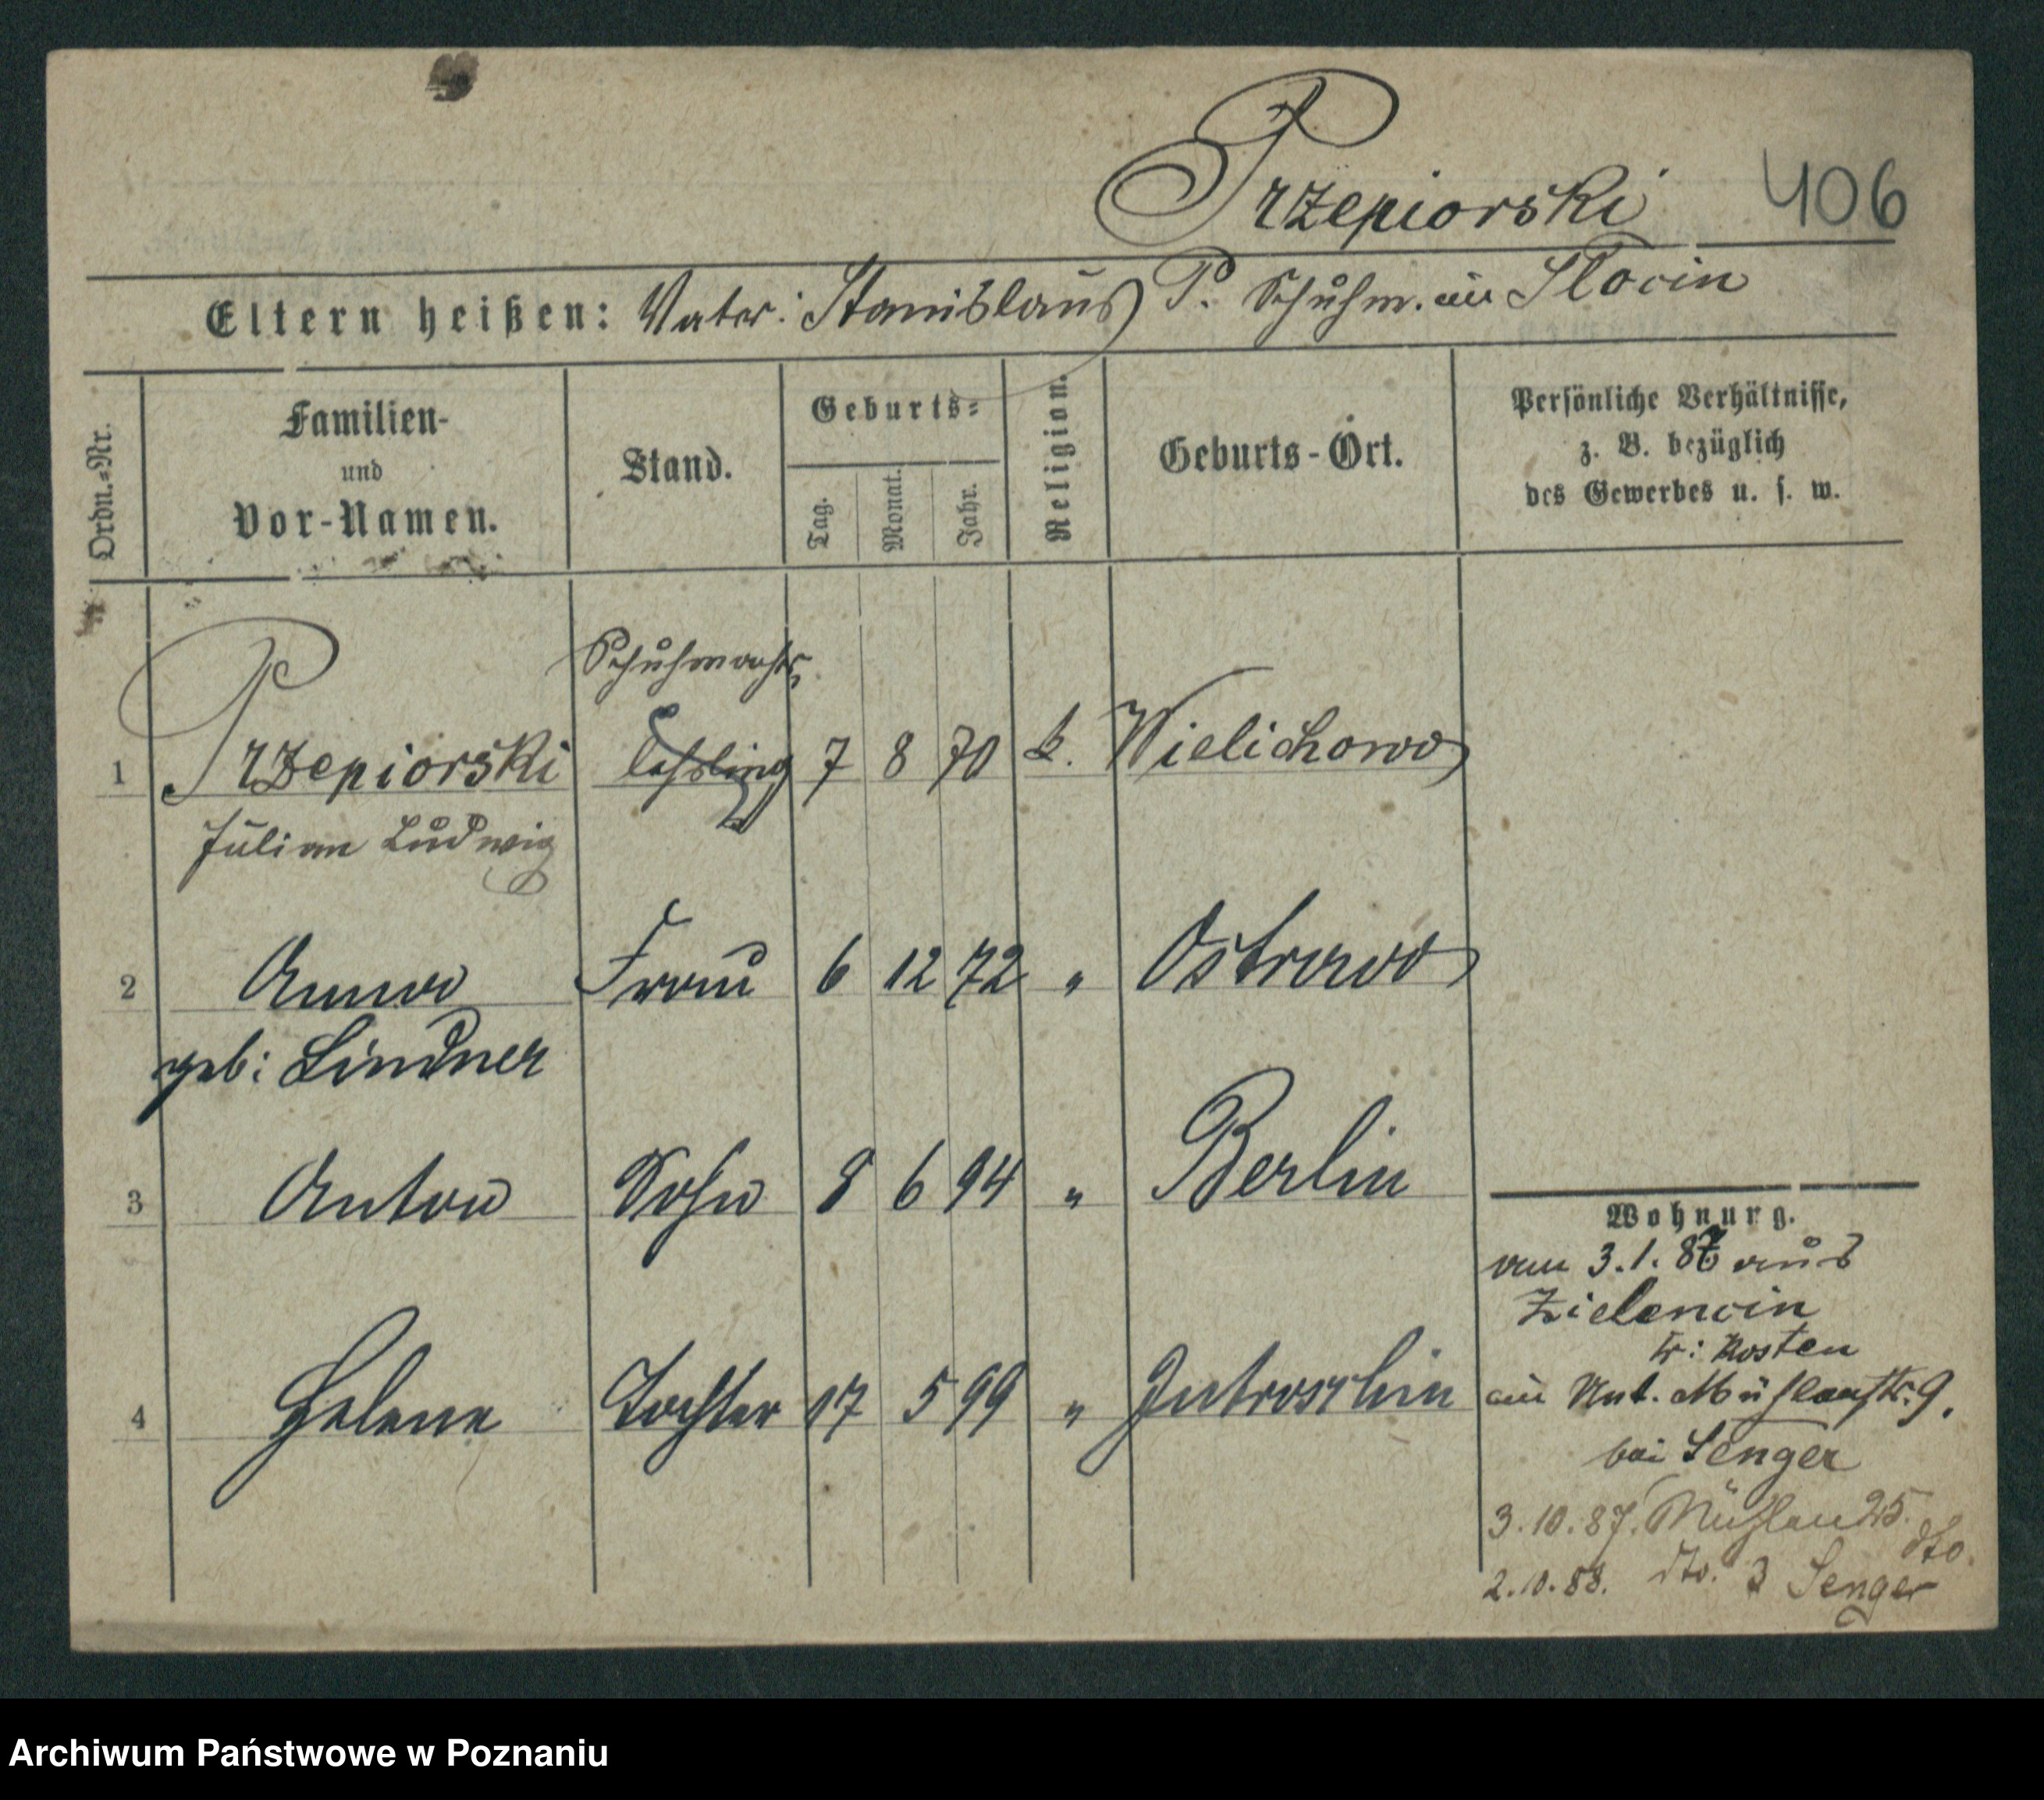 Przepiorski 406
Eltern heißen: Vater: Stanislaus P. Schuhm. in Slocin
Ordn.=Nr.
Familien-
und
Vor-Namen.
Stand.
Geburts=
Tag.
Monat.
Jahr.
Religion.
Geburts-Ort.
Persönliche Verhältnisse,
z. B. bezüglich
des Gewerbes u. s. w.
Schuhmacher
1 Przepiorski Lehrling 7 8 70 k. Wielichowo
Julian Ludwig
2 Anna Frau 6 12 72 " Ostrowo
geb: Lindner
3 Anton Sohn 8 6 94 " Berlin
4 Helene Tochter 17 5 99 " Jutroschin
Wohnung.
am 3.1.87 aus
Zielencin
Kr: Kosten
in Unt. Mühlenstr. 9.
bei Senger
3.10.87. Mühlen 25.
dto.
2.10.88. dto. 3 Senger
Archiwum Państwowe w Poznaniu